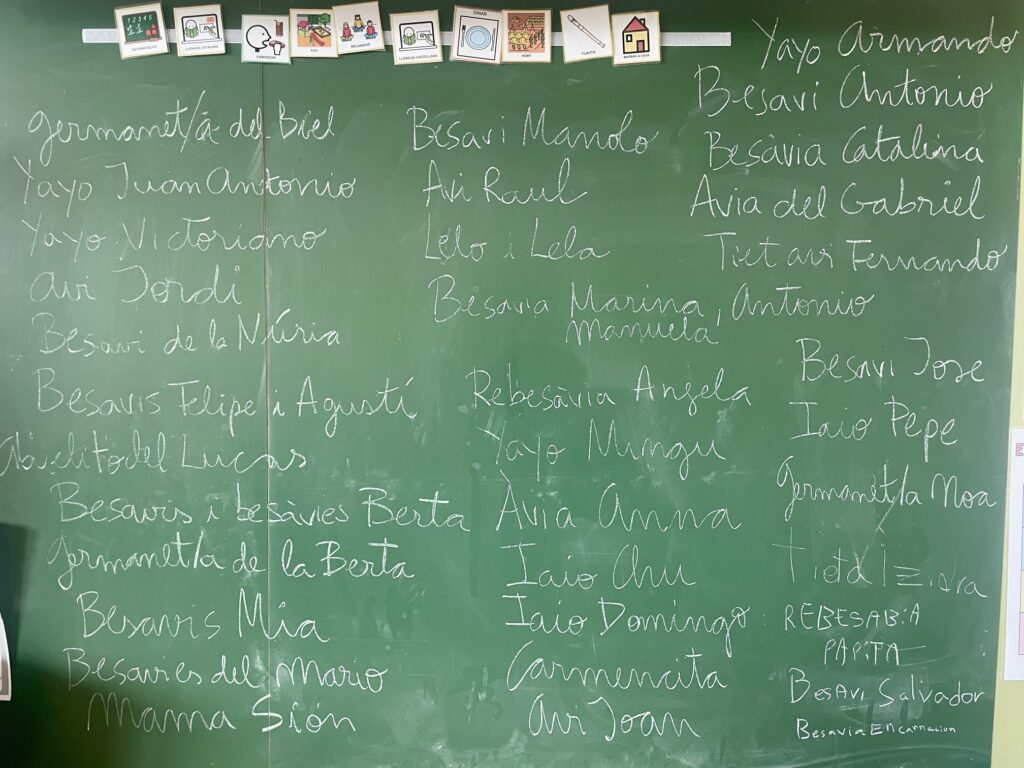 MATEMÀTIQUES
LLENGUA CATALANA
ESMORZAR
PATI
RELAXACIÓ
LLENGUA CASTELLANA
DINAR
HORT
FLAUTA
MARXAR A CASA
germanet/a del Biel
Yayo Juan Antonio
Yayo Victoriano
Avi Jordi
Besavi de la Núria
Besavis Felipe i Agustí
Abuelito del Lucas
Besavis i besàvies Berta
germanet/a de la Berta
Besavis Mia
Besavies del Mario
Mama Sión
Besavi Manolo
Avi Raul
Lelo i Lela
Besavia Marina, Antonio
Manuela
Rebesàvia Angela
Yayo Mingu
Àvia Anna
Iaio Chu
Iaio Domingo
Carmencita
Avi Joan
Yayo Armando
Besavi Antonio
Besàvia Catalina
Avia del Gabriel
Tiet avi Fernando
Besavi Jose
Iaio Pepe
Germanet/a Noa
Tieta
REBESABIA
PAPITA
Besavi Salvador
Besavia Encarnacion